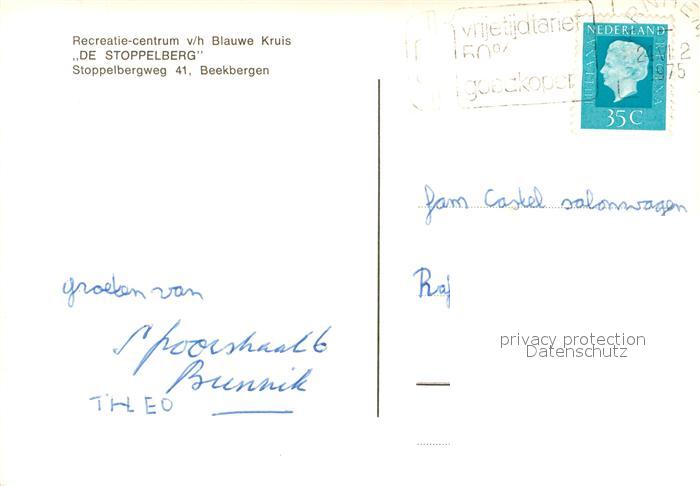 Recreatie-centrum v/h Blauwe Kruis
„DE STOPPELBERG"
Stoppelbergweg 41, Beekbergen
vrijetijdtarief
50%
goedkoper
1975
NEDERLAND
JULIANA REGINA
35 C
fam Castel salonwagen
Raj
groeten van
Spoorstraat 6
Bunnik
THEO
privacy protection
Datenschutz